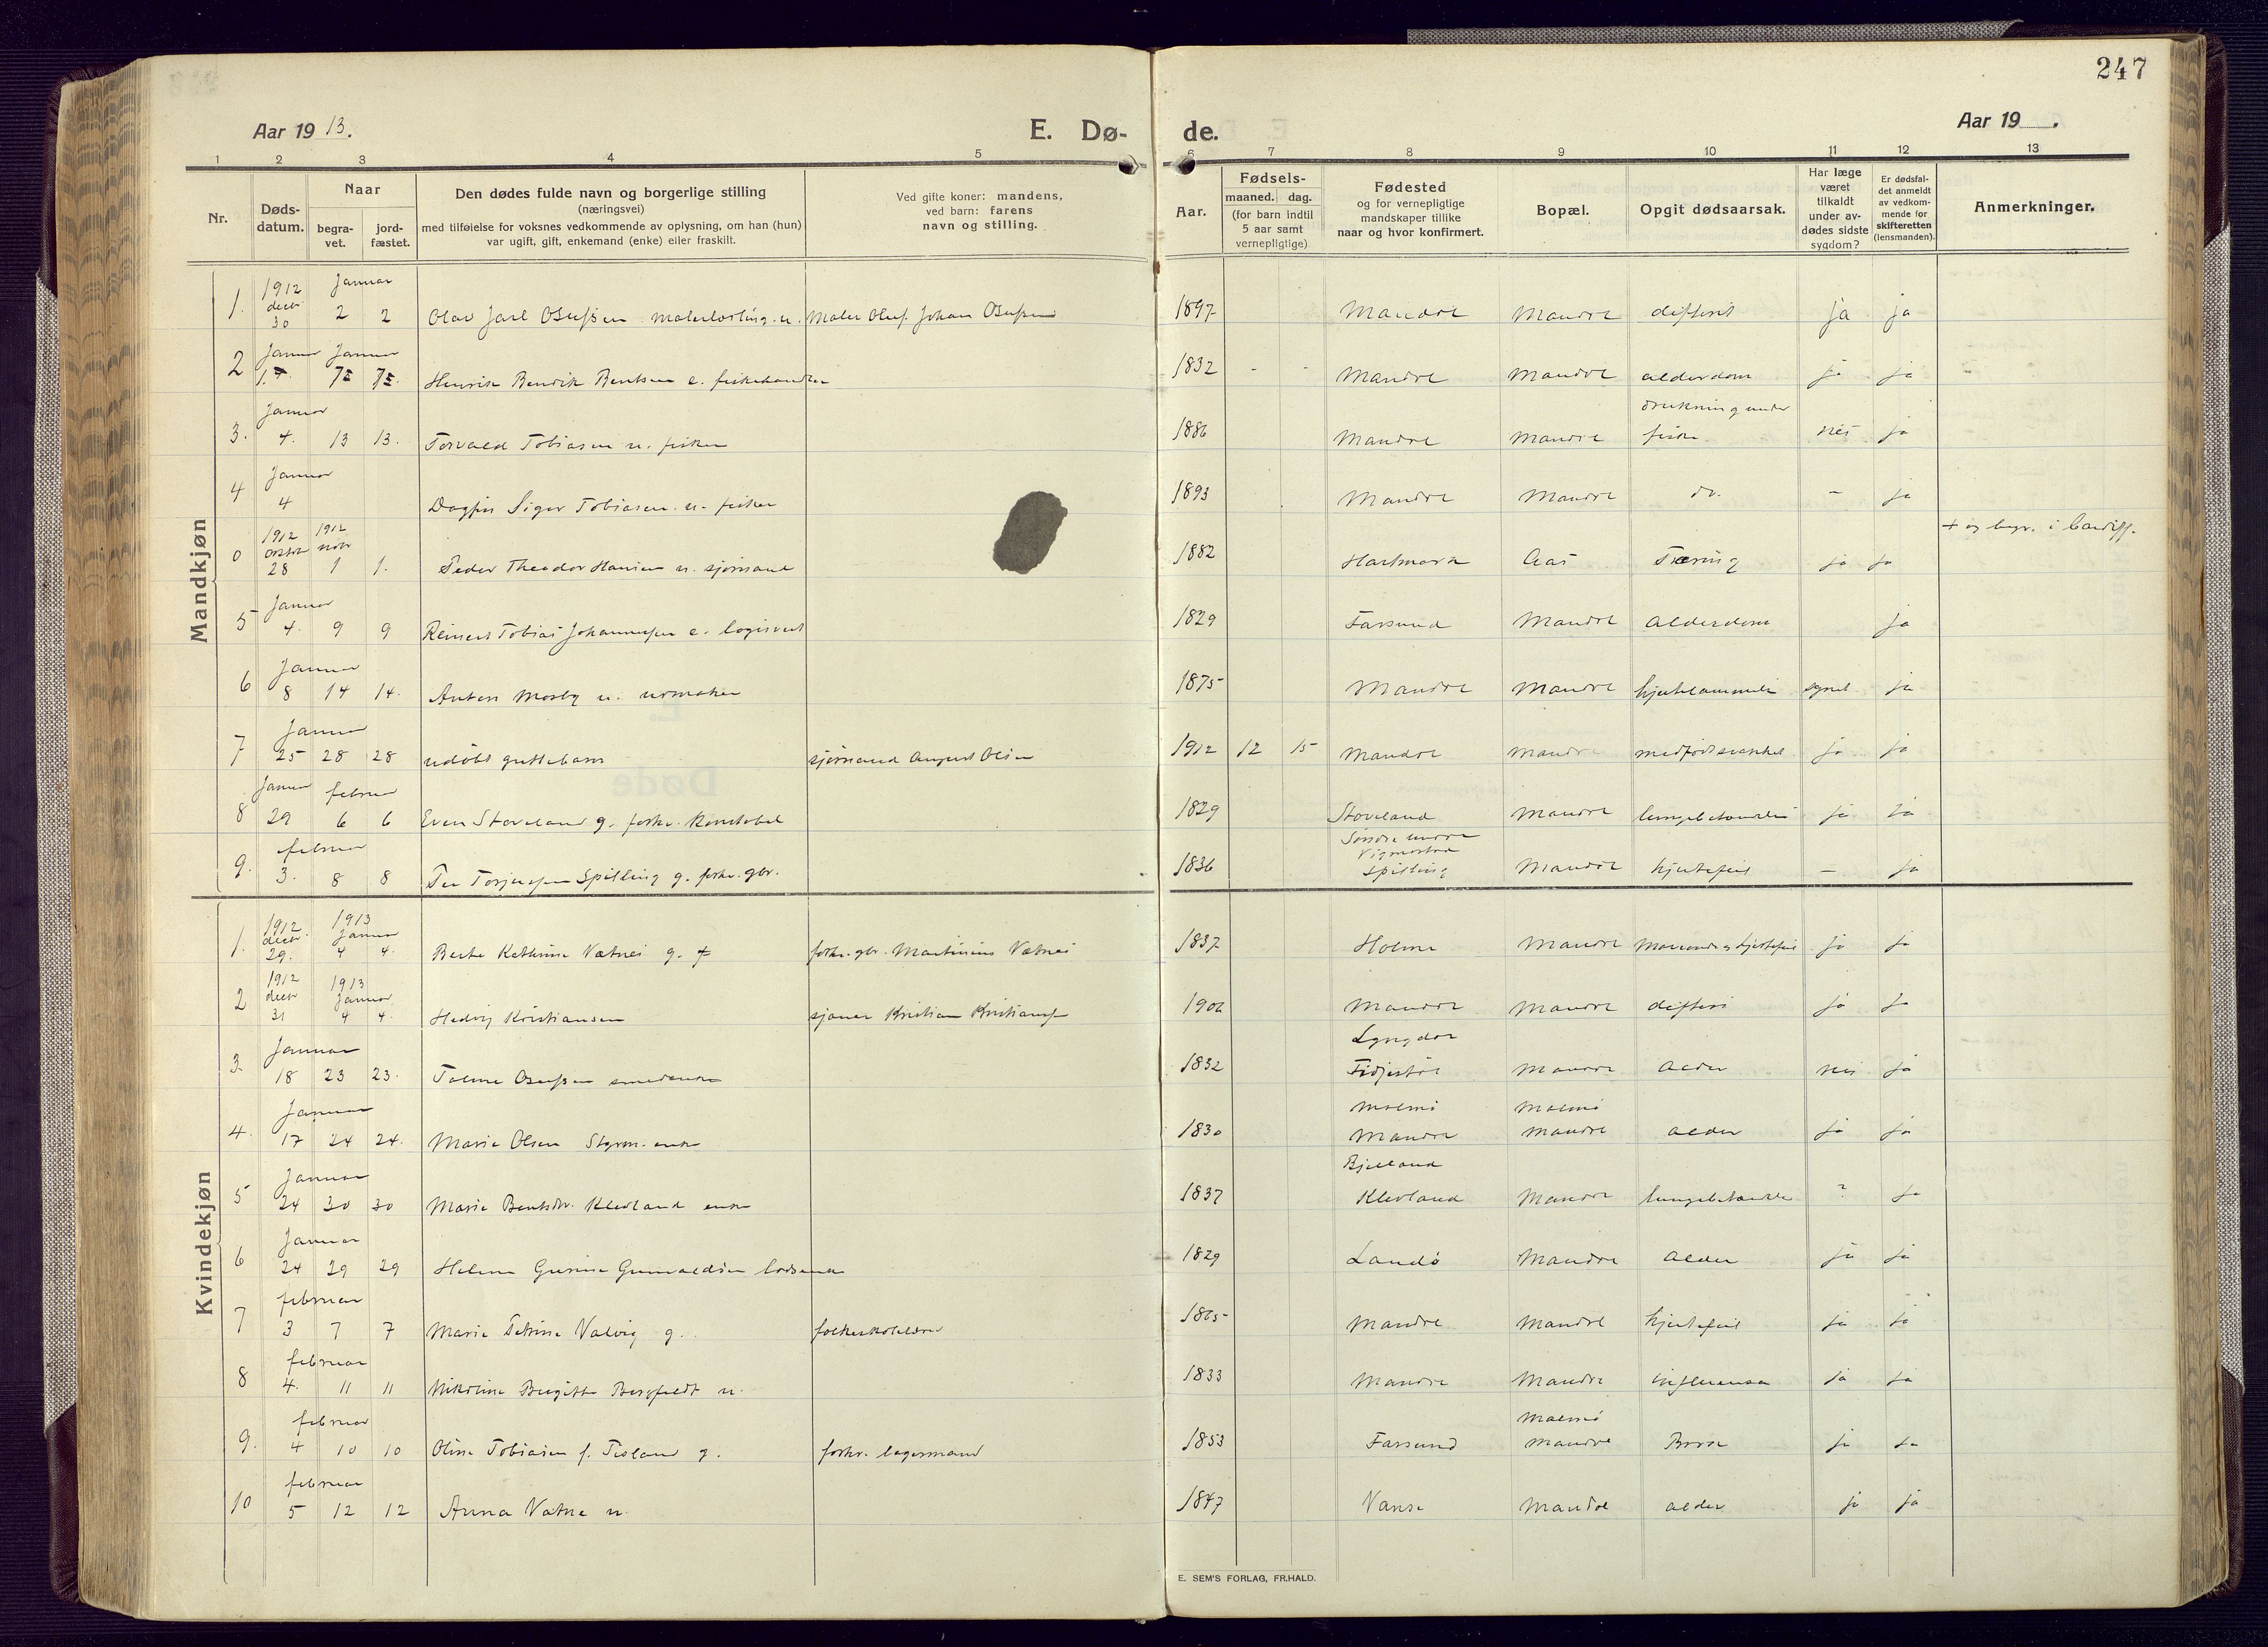 247
Aar 19 13.
E. Dø-
de.
Aar 19 .
1 2 3 4 5 6 7 8 9 10 11 12 13
Nr.
Døds-
datum.
Naar
begra-
vet.
jord-
fæstet.
Den dødes fulde navn og borgerlige stilling
(næringsvei)
med tilføielse for voksnes vedkommende av oplysning, om han (hun)
var ugift, gift, enkemand (enke) eller fraskilt.
Ved gifte koner: mandens,
ved barn: farens
navn og stilling.
Aar.
Fødsels-
maaned. dag.
(for barn indtil
5 aar samt
vernepligtige)
Fødested
og for vernepligtige
mandskaper tillike
naar og hvor konfirmert.
Bopæl.
Opgit dødsaarsak.
Har læge
været
tilkaldt
under av-
dødes sidste
sygdom?
Er dødsfal-
det anmeldt
av vedkom-
mende for
skifteretten
(lensmanden).
Anmerkninger.
Mandkjøn
1912 Januar
1. decbr 30 2 2 Olav Jarl Olufsen malerlærling u. Maler Oluf Johan Olufsen 1897 Mandal Mandal difterit ja ja
Januar Januar
2 1. 7 7 Henrik Bendik Bentsen e. fiskehandler 1832 - - Mandal Mandal alderdom ja ja
Januar drukning under
3. 4. 13 13. Torvald Tobiasen u. fisker 1886 Mandal Mandal fiske nei ja
Januar
4 4 Dagfin Sigur Tobiasen u. fisker 1893 Mandal Mandal do. - ja
1912 1912 + og begr. i Cardiff.
0 28 novbr 1 1. Peder Theodor Hansen u. sjømand 1882 Hartmark Aas Tæring ja ja
Januar
5 4. 9 9 Reinert Tobias Johannesen e. logisvert 1829 Farsund Mandal Alderdom ja
Januar
6 8 14 14. Anton Mosby u. urmaker 1875 Mandal Mandal hjertelammelse ja
Januar
7 25 28 28 udøbt guttebarn sjømand August Olsen 1912 12 15 Mandal Mandal medfødt svakhet ja ja
Januar februar
8 29 6 6 Even Stoveland g. forhv. konstabel 1829 Stoveland Mandal lungebetændelse ja ja
februar Søndre Undal
Vigmostad
9. 3. 8 8 Per Torjussen Spilling g. forhv. gbr. 1836 Spilling Mandal hjertefeil - ja
Kvindekjøn
1912 1913
1. decbr. 29. Januar 4 4. Berte Kathrine Vatnei g. forhv. gbr. Martinius Vatnei 1837 Holme Mandal hjertefeil ja ja
1912 1913
2 decbr 31 Januar 4 4. Hedvig Kristiansen Kristian Kristiansen 1906 Mandal Mandal difteri ja ja
Januar Lyngdal
3. 18 23 23. Toline Olufsen smedenke 1832 Fidjestøl Mandal Alder nei ja
Januar Malmø Malmø
4. 17 24 24. Marie Olsen Styrm. enke 1830 Mandal Mandal alder ja ja
Januar Bjelland
5 24 30 30 Marie Bentsdtr. Klevland enke 1837 Klevland Mandal lungebetændelse ? ja
Januar
6 24 29 29 Helene Gurine Gunvaldsen losenke 1829 Landø Mandal Alder ja ja
februar
7 3 7 7 Marie Petrine Valvig g. folkeskolelærer 1865 Mandal Mandal hjertefeil ja ja
februar
8 4. 11 11 Nikoline Birgitte Bergfeldt u. 1833 Mandal Mandal influensa ja ja
februar Malmø
9. 4 10 10 Oline Tobiasen f. g. forhv. lagermand 1853 Farsund Mandal ja ja
februar
10 5 12 12 Anna Vatne u. 1847 Vanse Mandal alder ja ja
E. SEM'S FORLAG, FR.HALD.